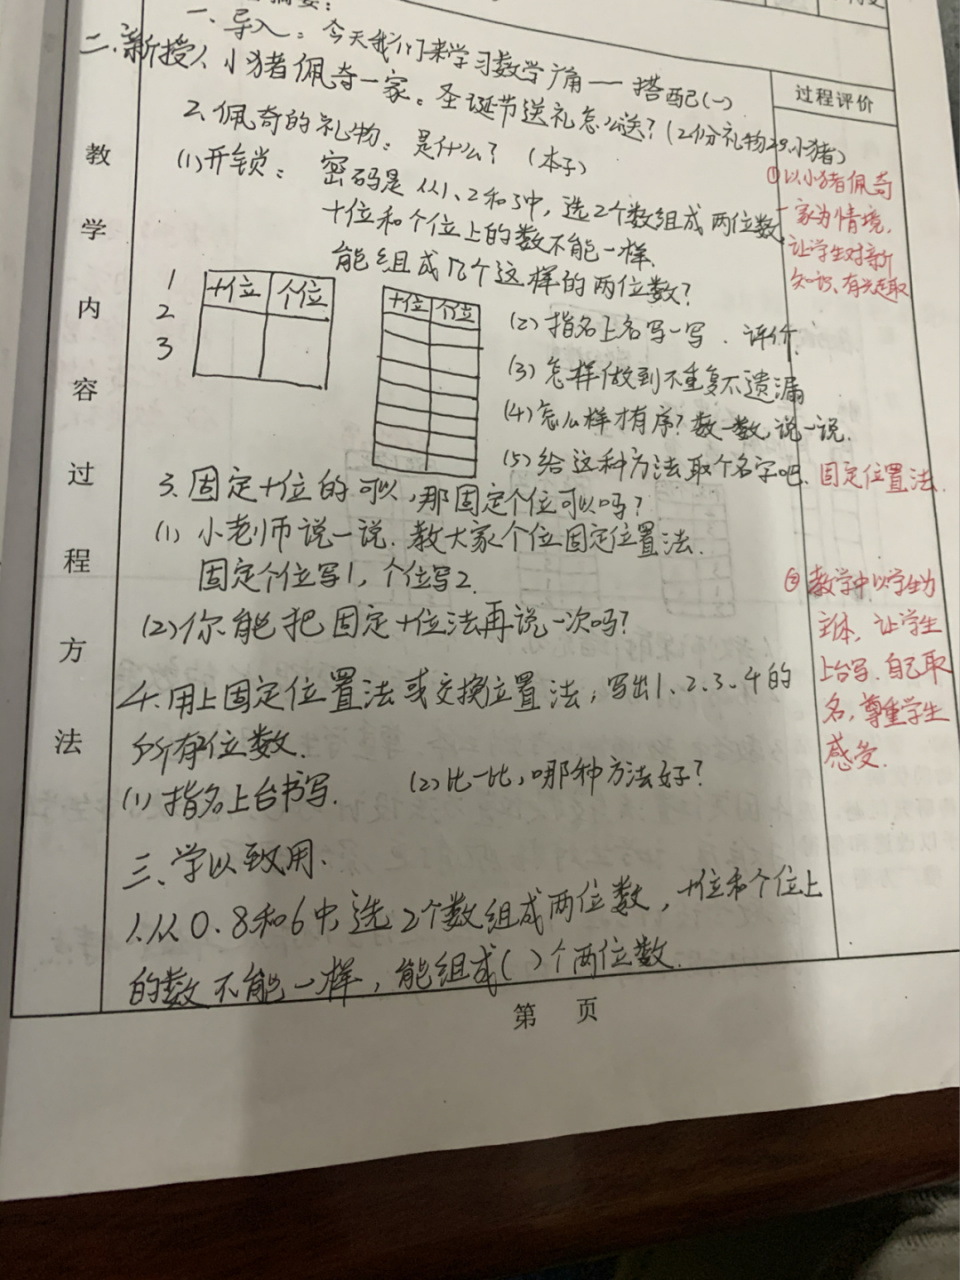 摘要:
一、导入：今天我们来学习数学广角——搭配(一)
二.新授1、小猪佩奇一家。圣诞节送礼怎么送？(2份礼物2只小猪)
2.佩奇的礼物：是什么？（本子）
(1)开锁：密码是从1、2和3中，选2个数组成两位数
十位和个位上的数不能一样.
能组成几个这样的两位数？
1
2
3
十位 个位
十位 个位
(2)指名上台写一写.评价.
(3)怎样做到不重复不遗漏
(4)怎么样才有序?数一数,说一说.
(5)给这种方法取个名字吧.固定位置法.
3.固定十位的可以,那固定个位可以吗?
(1)小老师说一说.教大家个位固定位置法.
固定个位写1,个位写2.
(2)你能把固定十位法再说一次吗?
4.用上固定位置法或交换位置法,写出1、2、3、4的
所有位数.
(1)指名上台书写. (2)比一比,哪种方法好?
三、学以致用.
1.从0.8和6中,选2个数组成两位数,十位和个位上
的数不能一样,能组成( )个两位数.
教学内容过程方法
过程评价
①以小猪佩奇
一家为情境,
让学生对新
知识,有兴趣
②教学中以学生为
主体,让学生
上台写.自己取
名,尊重学生
感受.
第 页